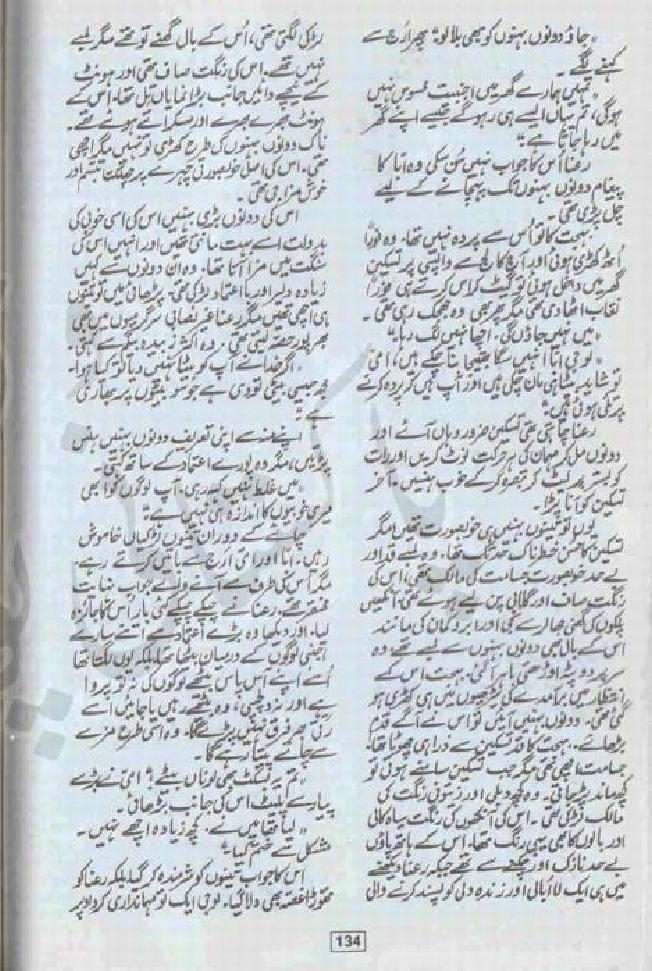 "جاؤ دونوں بہنوں کو بھی بلا لو۔" پھر ارج سے
کہنے لگے۔
"تمہیں ہمارے گھر میں اجنبیت محسوس نہیں
ہو گی، تم یہاں ایسے ہی رہو گے جیسے اپنے گھر
میں رہا جاتا ہے۔"
رعنا اس کا جواب نہیں سن سکی وہ ابا کا
پیغام دونوں بہنوں تک پہنچانے کے لیے
چل پڑی تھی۔
بہجت کا تو اس سے پردہ نہیں تھا۔ وہ فوراً
اٹھ کھڑی ہوئی اور آج کالج سے واپسی پر تسکین
گھر میں داخل ہوئی تو گیٹ کراس کرتے ہی فوراً
نقاب اٹھا دی تھی مگر پھر بھی وہ جھجک رہی تھی۔
"میں نہیں جاؤں گی۔ اچھا نہیں لگ رہا۔"
"لو جی ابا انہیں سگا بھتیجا بنا چکے ہیں، امی
تو شاید بیٹا ہی مان چکی ہیں اور آپ ہیں کہ پردہ کرنے
پر تلی ہوئی ہیں۔"
رعنا چاہتی تھی تسکین ضرور وہاں آئے اور
دونوں مل کر مہمان کی ہر حرکت نوٹ کریں اور رات
کو بستر پر لیٹ کر تبصرہ کر کے خوب ہنسیں۔ آخر
تسکین کو آنا پڑا۔
یوں تو تینوں بہنیں ہی خوبصورت تھیں مگر
تسکین کا حسن خطرناک حد تک تھا۔ وہ لمبے قد اور
بے حد خوبصورت جسامت کی مالک تھی، اس کی
رنگت صاف اور گلابی پن لیے ہوئے تھی، آنکھیں
پلکوں کی گھنی جھالر سے سجی اور ابرو کمان کی مانند
اس کے بال بھی دونوں بہنوں سے لمبے تھے وہ
سر پر دوپٹہ اوڑھتی باہر آ گئی۔ بہجت اس کے
انتظار میں برآمدے کی سیڑھیوں میں ہی کھڑی ہو
گئی تھی۔ دونوں بہنیں آئیں تو اس نے آگے قدم
بڑھائے۔ بہجت کا قد تسکین سے ذرا ہی چھوٹا تھا۔
جسامت اچھی تھی مگر جب تسکین سامنے ہوتی تو
کچھ ماند پڑ جاتی۔ وہ کچھ دبلی اور زیتونی رنگت کی
مالک لڑکی تھی۔ اس کی آنکھوں کی رنگت سیاہ کالی
اور بالوں کا بھی یہی رنگ تھا۔ اس کے ہاتھ پاؤں
بے حد نازک اور چکنے سے تھے جبکہ رعنا دیکھنے
میں ہی ایک لاابالی اور زندہ دلی کو پسند کرنے والی
لڑکی لگتی تھی، اس کے بال گھنے تو تھے مگر لمبے
نہیں تھے۔ اس کی رنگت صاف تھی اور ہونٹ
کے نیچے دائیں جانب بڑا نمایاں تل تھا۔ اس کے
ہونٹ بھرے بھرے اور مسکراتے ہوئے تھے۔
ناک دونوں بہنوں کی طرح کھڑی تو نہیں مگر اچھی
تھی۔ اس کی اصل خوبصورتی چہرے پر چھلکتا تبسم اور
خوش مزاجی تھی۔
اس کی دونوں بڑی بہنیں اس کی اسی خوبی کی
بدولت اسے بہت مانتی تھیں اور انہیں اس کی
سنگت میں مزا آتا تھا۔ وہ ان دونوں سے کہیں
زیادہ دلیر اور بااعتماد لڑکی تھی۔ پڑھائی میں تو تینوں
ہی اچھی تھیں مگر رعنا غیر نصابی سرگرمیوں میں بھی
بھرپور حصہ لیتی تھی۔ وہ اکثر زبیدہ بیگم سے کہتی۔
"اگر خدا نے آپ کو بیٹا نہیں دیا تو کیا ہوا۔
مجھ جیسی بیٹی تو دی ہے جو سو بیٹوں پر بھاری
ہے۔"
اپنے منہ سے اپنی تعریف دونوں بہنیں ہنس
پڑتیں، مگر وہ پورے اعتماد کے ساتھ کہتی۔
"میں غلط نہیں کہہ رہی۔ آپ لوگوں کو ابھی
میری خوبیوں کا اندازہ ہی نہیں ہے۔"
چائے کے دوران تینوں لڑکیاں خاموش
رہیں۔ ابا اور امی ارج سے باتیں کرتے رہے۔
مگر اس کی طرف سے آنے والے جواب نہایت
مختصر تھے۔ رعنا نے چپکے چپکے کئی بار اس کا جائزہ
لیا۔ اور دیکھا وہ بڑے اعتماد سے اتنے سارے
اجنبی لوگوں کے درمیان بیٹھا تھا بلکہ یوں لگتا تھا
اسے اپنے آس پاس بیٹھے لوگوں کی نہ تو پروا
ہے اور نہ دلچسپی، وہ بیٹھے رہیں یا جائیں اسے
رتی بھر فرق نہیں پڑے گا۔ وہ اسی طرح مزے
سے چائے پیتا رہے گا۔
"تم یہ کٹلٹ بھی لو ناں بیٹے!" امی نے بڑے
پیار سے پلیٹ اس کی جانب بڑھائی۔
"لیا تھا میں نے۔ کچھ زیادہ اچھے نہیں۔
مشکل سے ختم کیا۔"
اس کا جواب تینوں کو شرمندہ کر گیا بلکہ رعنا کو
تھوڑا غصہ بھی دلا گیا۔ لو جی ایک تو مہمانداری کرو اوپر
134